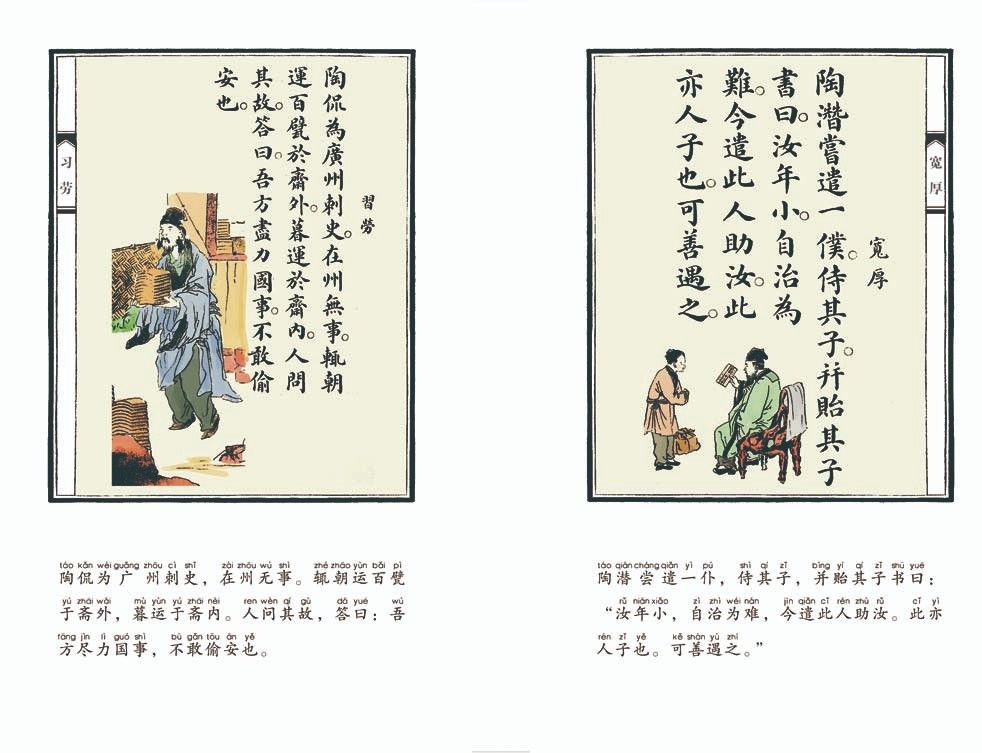 习劳
習勞
陶侃為廣州刺史。在州無事。輒朝
運百甓於齋外。暮運於齋內。人問
其故。答曰。吾方盡力國事。不敢偷
安也。
táo kǎn wèi guǎng zhōu cì shǐ zài zhōu wú shì zhé zhāo yùn bǎi pì
陶侃为广州刺史，在州无事。辄朝运百甓
yú zhāi wài mù yùn yú zhāi nèi rén wèn qí gù dá yuē wú
于斋外，暮运于斋内。人问其故，答曰：吾
fāng jìn lì guó shì bù gǎn tōu ān yě
方尽力国事，不敢偷安也。
宽厚
寬厚
陶潛嘗遣一僕。侍其子。并貽其子
書曰。汝年小。自治為
難。今遣此人助汝。此
亦人子也。可善遇之。
táo qián cháng qiǎn yì pú shì qí zǐ bìng yí qí zǐ shū yuē
陶潜尝遣一仆，侍其子，并贻其子书曰：
rǔ nián xiǎo zì zhì wéi nán jīn qiǎn cǐ rén zhù rǔ cǐ yì
“汝年小，自治为难，今遣此人助汝。此亦
rén zǐ yě kě shàn yù zhī
人子也。可善遇之。”